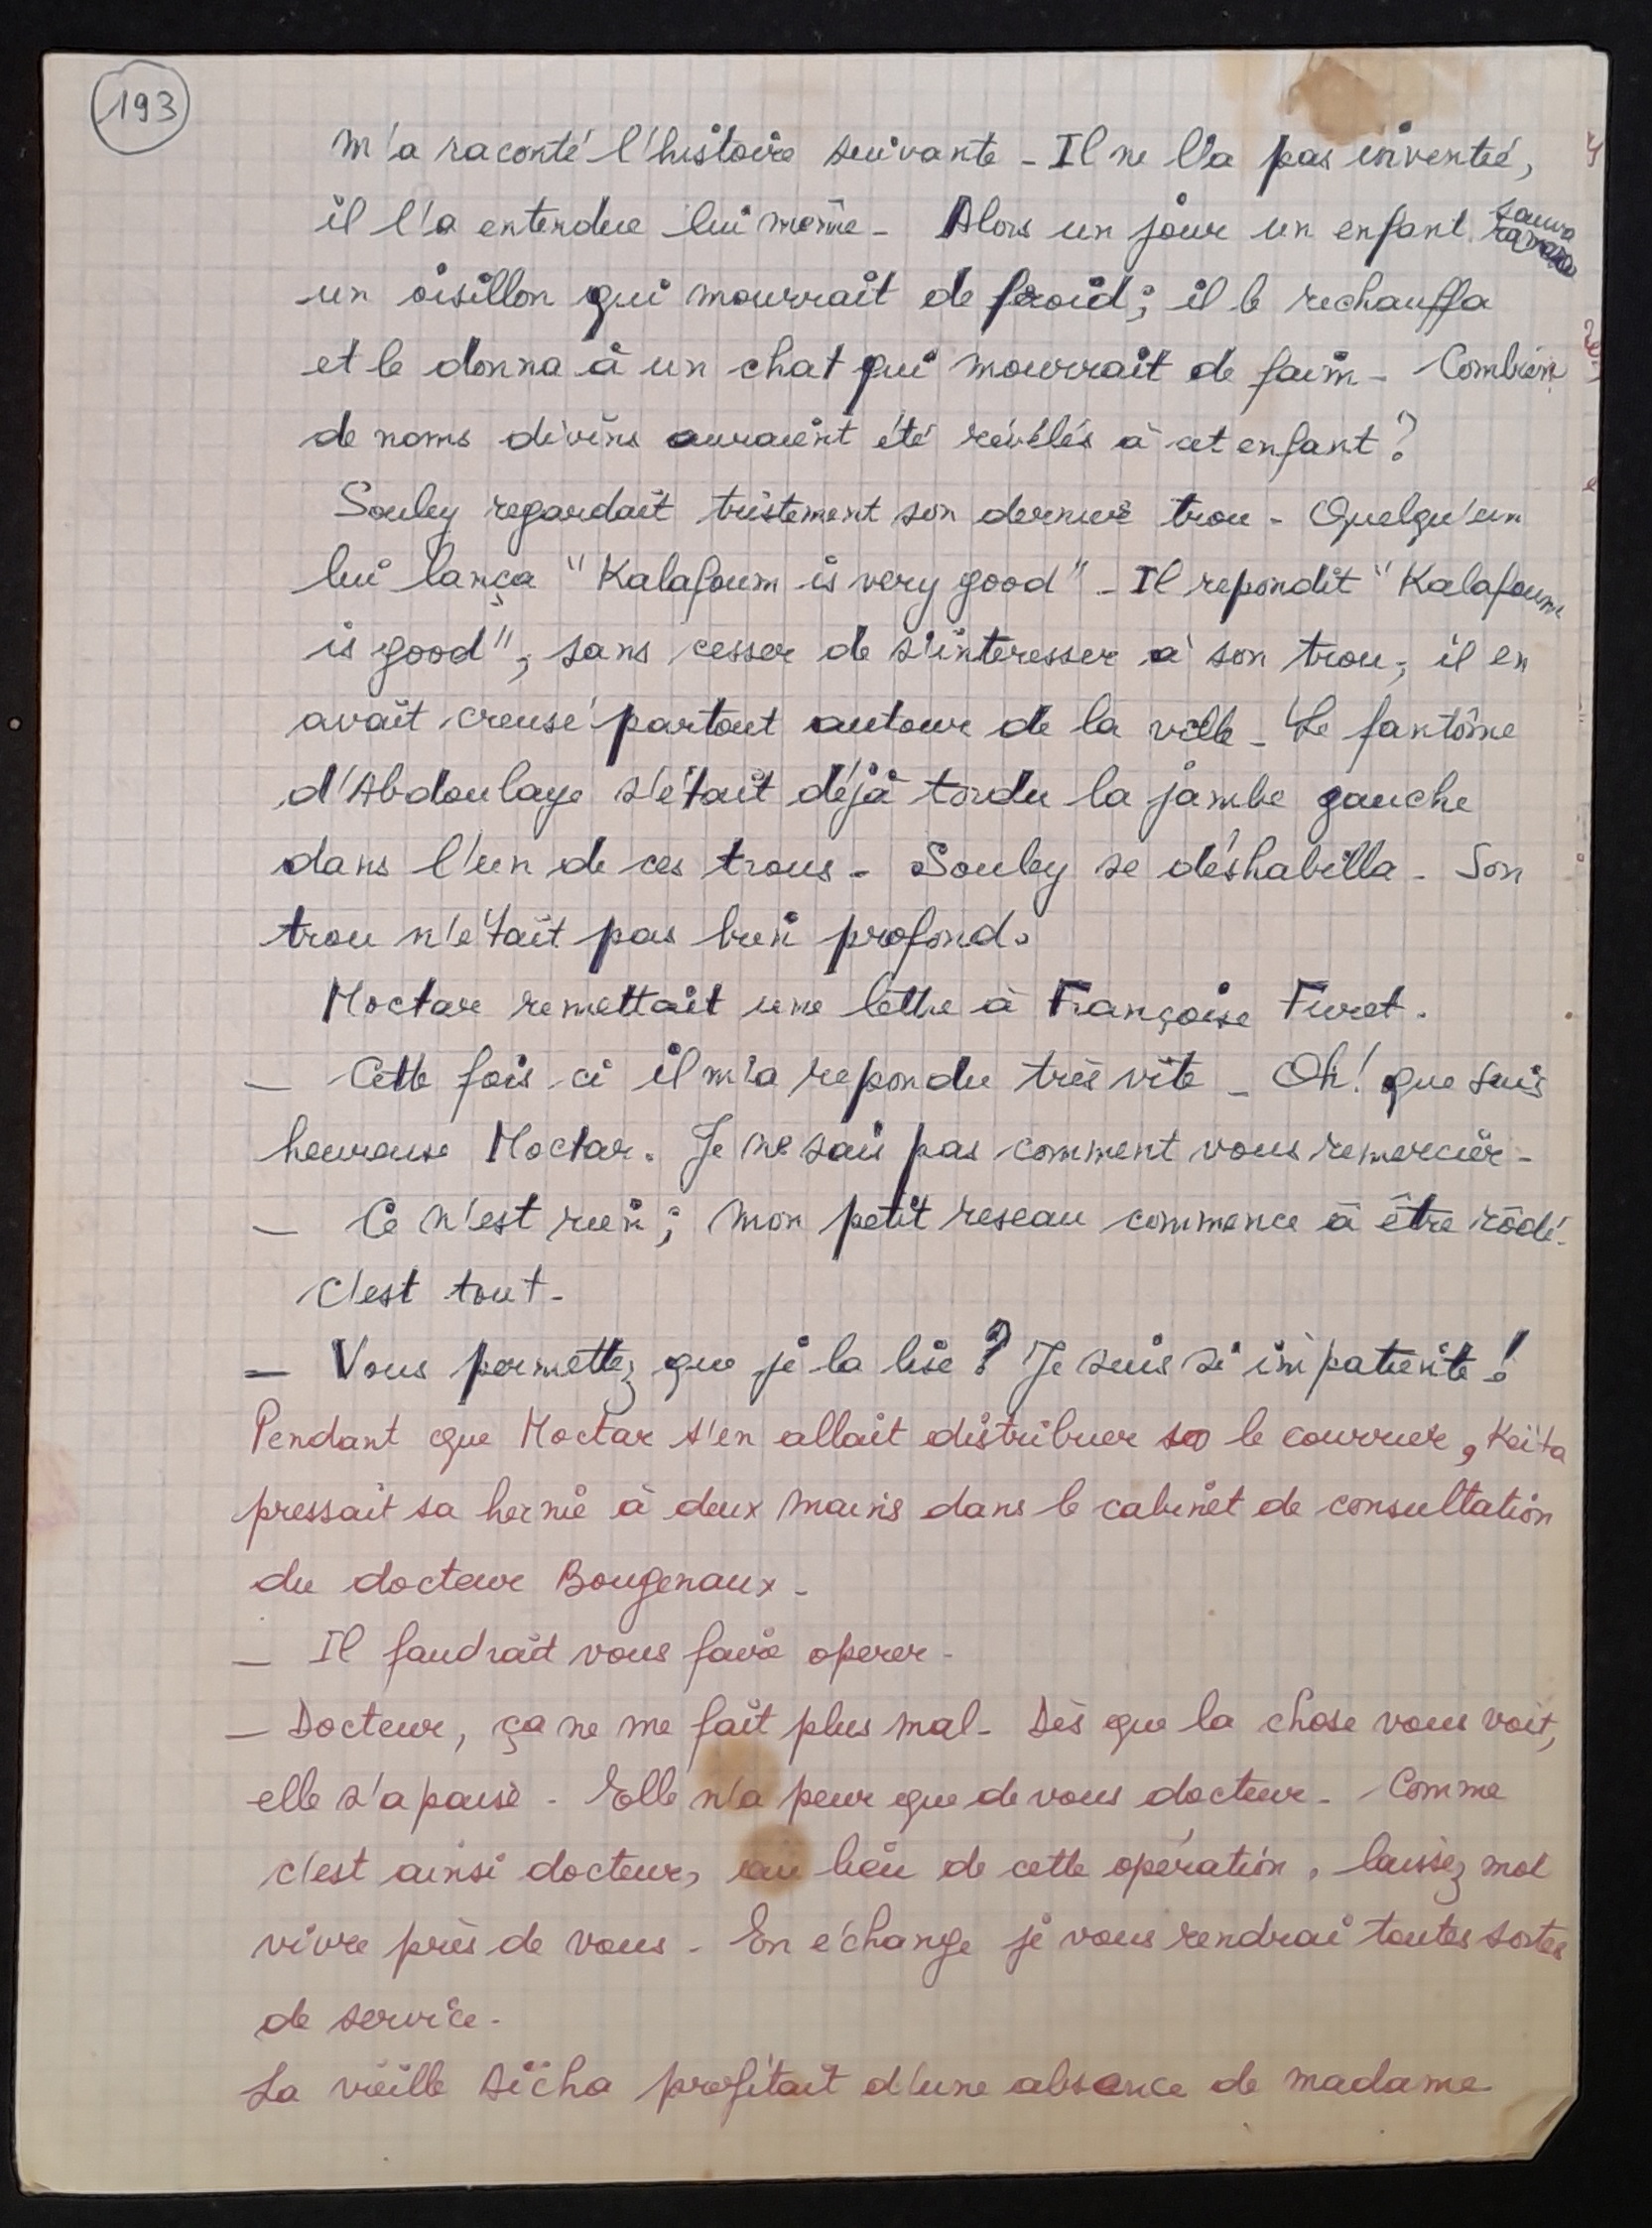 193
m'a raconté l'histoire suivante - Il ne l'a pas inventée,
il l'a entendue lui même - Alors un jour un enfant sauva
un oisillon qui mourrait de froid; il le rechauffa
et le donna à un chat qui mourrait de faim - Combien
de noms divins auraient été révélés à cet enfant?
Souley regardait tristement son dernier trou - Quelqu'un
lui lança "Kalafoum is very good" - Il repondit "Kalafoum
is good", sans cesser de s'interesser à son trou; il en
avait creusé partout autour de la ville - Le fantôme
d'Abdoulaye s'était déjà tordu la jambe gauche
dans l'un de ces trous - Souley se déshabilla - Son
trou n'était pas bien profond.
Moctar remettait une lettre à Françoise Furet.
- Cette fois-ci il m'a repondu très vite - Oh! que suis
heureuse Moctar. Je ne sais pas comment vous remercier -
- Ce n'est rien; mon petit reseau commence à être rôdé.
c'est tout -
- Vous permettez que je la lise? Je suis si impatiente!
Pendant que Moctar s'en allait distribuer le courrier, Keïta
pressait sa hernie à deux mains dans le cabinet de consultation
du docteur Bougenaux -
- Il faudrait vous faire operer -
- Docteur, ça ne me fait plus mal - Dès que la chose vous voit,
elle s'apaise - Elle n'a peur que de vous docteur - Comme
c'est ainsi docteur, au lieu de cette opération, laissez moi
vivre près de vous - En échange je vous rendrai toutes sortes
de service -
La vieille Sicha profitait d'une absence de madame